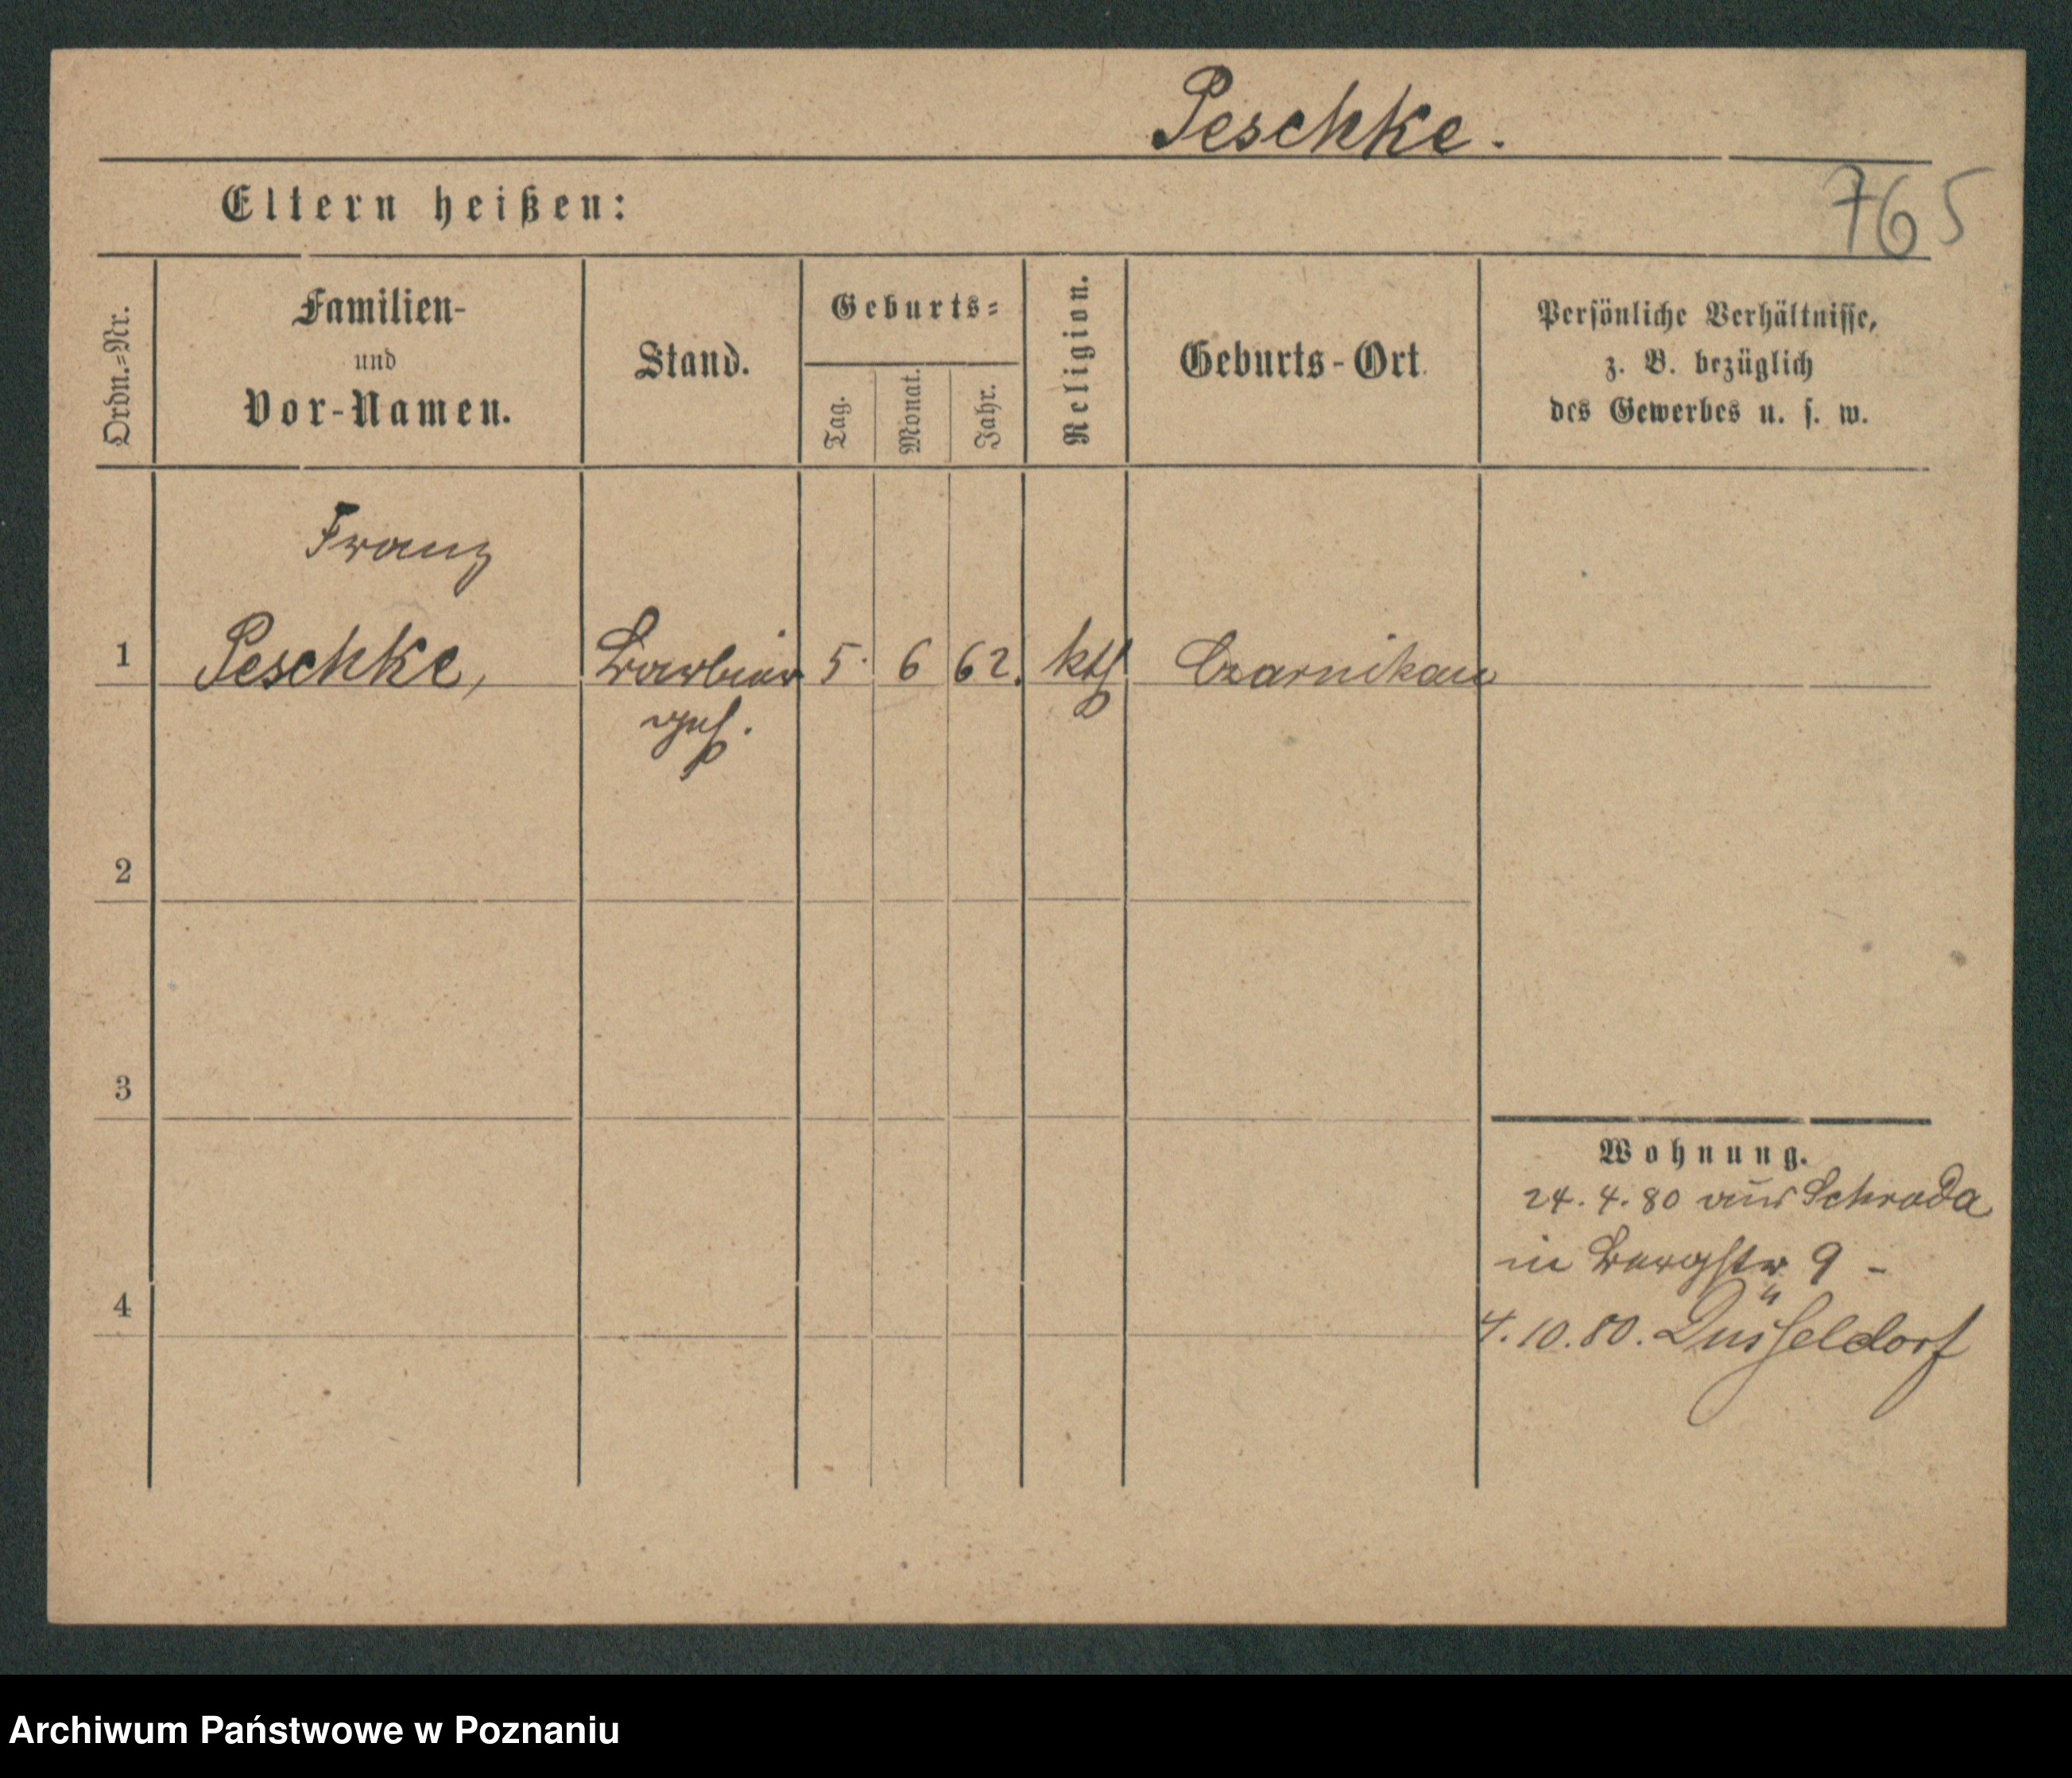 Peschke.
Eltern heißen:
765
Ordn.=Nr.
Familien-
und
Vor-Namen.
Stand.
Geburts=
Tag.
Monat.
Jahr.
Religion.
Geburts-Ort.
Persönliche Verhältnisse,
z. B. bezüglich
des Gewerbes u. s. w.
Franz
1 Peschke, Barbier 5. 6 62. kth Czarnikau
geh.
2
3
Wohnung.
24.4.80 aus Schroda
in Bergstr 9 -
4
4.10.80. Düsseldorf
Archiwum Państwowe w Poznaniu